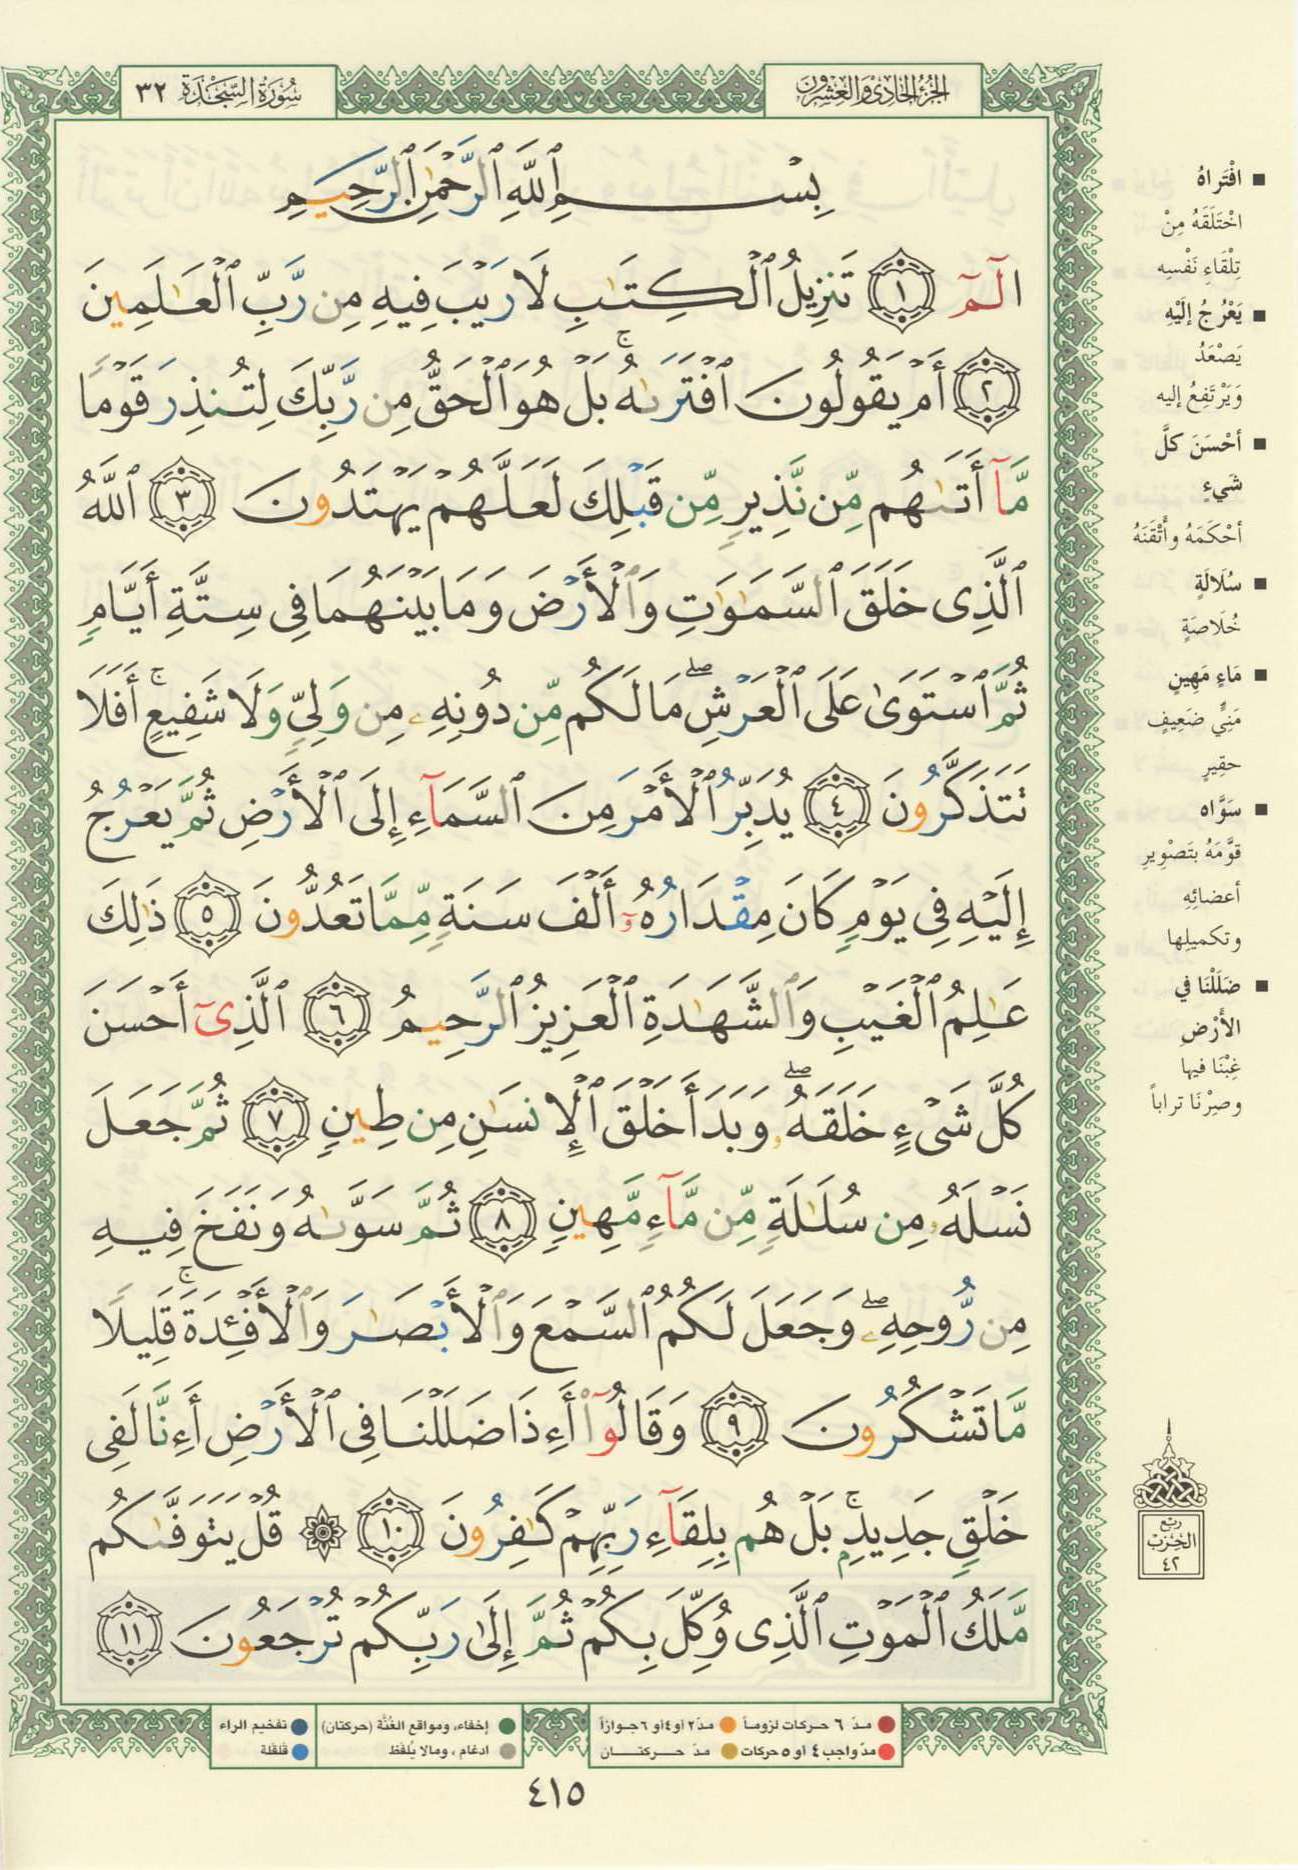 سُورَةُ السَّجْدَة ٣٢
الجُزءُ الحَادِي وَالعِشْرُونَ
بِسْمِ ٱللَّهِ ٱلرَّحْمَٰنِ ٱلرَّحِيمِ
الٓمٓ ١ تَنزِيلُ ٱلْكِتَٰبِ لَا رَيْبَ فِيهِ مِن رَّبِّ ٱلْعَٰلَمِينَ
٢ أَمْ يَقُولُونَ ٱفْتَرَىٰهُ ۚ بَلْ هُوَ ٱلْحَقُّ مِن رَّبِّكَ لِتُنذِرَ قَوْمًا
مَّآ أَتَىٰهُم مِّن نَّذِيرٍ مِّن قَبْلِكَ لَعَلَّهُمْ يَهْتَدُونَ ٣ ٱللَّهُ
ٱلَّذِى خَلَقَ ٱلسَّمَٰوَٰتِ وَٱلْأَرْضَ وَمَا بَيْنَهُمَا فِى سِتَّةِ أَيَّامٍ
ثُمَّ ٱسْتَوَىٰ عَلَى ٱلْعَرْشِ ۖ مَا لَكُم مِّن دُونِهِۦ مِن وَلِىٍّ وَلَا شَفِيعٍ ۚ أَفَلَا
تَتَذَكَّرُونَ ٤ يُدَبِّرُ ٱلْأَمْرَ مِنَ ٱلسَّمَآءِ إِلَى ٱلْأَرْضِ ثُمَّ يَعْرُجُ
إِلَيْهِ فِى يَوْمٍ كَانَ مِقْدَارُهُۥٓ أَلْفَ سَنَةٍ مِّمَّا تَعُدُّونَ ٥ ذَٰلِكَ
عَٰلِمُ ٱلْغَيْبِ وَٱلشَّهَٰدَةِ ٱلْعَزِيزُ ٱلرَّحِيمُ ٦ ٱلَّذِىٓ أَحْسَنَ
كُلَّ شَىْءٍ خَلَقَهُۥ ۖ وَبَدَأَ خَلْقَ ٱلْإِنسَٰنِ مِن طِينٍ ٧ ثُمَّ جَعَلَ
نَسْلَهُۥ مِن سُلَٰلَةٍ مِّن مَّآءٍ مَّهِينٍ ٨ ثُمَّ سَوَّىٰهُ وَنَفَخَ فِيهِ
مِن رُّوحِهِۦ ۖ وَجَعَلَ لَكُمُ ٱلسَّمْعَ وَٱلْأَبْصَٰرَ وَٱلْأَفْـِٔدَةَ ۚ قَلِيلًا
مَّا تَشْكُرُونَ ٩ وَقَالُوٓا۟ أَءِذَا ضَلَلْنَا فِى ٱلْأَرْضِ أَءِنَّا لَفِى
خَلْقٍ جَدِيدٍۭ ۚ بَلْ هُم بِلِقَآءِ رَبِّهِمْ كَٰفِرُونَ ١٠ ۞ قُلْ يَتَوَفَّىٰكُم
مَّلَكُ ٱلْمَوْتِ ٱلَّذِى وُكِّلَ بِكُمْ ثُمَّ إِلَىٰ رَبِّكُمْ تُرْجَعُونَ ١١
■ افْتَراهُ
اخْتَلَقَهُ مِنْ
تِلْقَاءِ نَفْسِه
■ يَعْرُجُ إِلَيْهِ
يَصْعَدُ
وَيَرْتَفِعُ إليه
■ أحْسَنَ كلَّ
شيءٍ
أحْكَمَهُ وأَتْقَنَهُ
■ سُلَالَةٍ
خُلَاصَةٍ
■ مَاءٍ مَهِينٍ
مَنِيٍّ ضَعِيفٍ
حقِيرٍ
■ سَوَّاه
قوَّمَهُ بتَصْوِيرِ
أعضائِهِ
وتكمِيلِها
■ ضَلَلْنَا في
الأَرْضِ
غِبْنَا فيها
وصِرْنَا تراباً
ربع
الحزب
٤٢
مدّ ٦ حركات لزوماً
مدّ ٢ أو ٤ أو ٦ جوازاً
إخفاء، ومواقع الغُنَّة (حركتان)
تفخيم الراء
مدّ واجب ٤ أو ٥ حركات
مدّ حركتان
ادغام، ومالا يُلفَظ
قلقلة
٤١٥